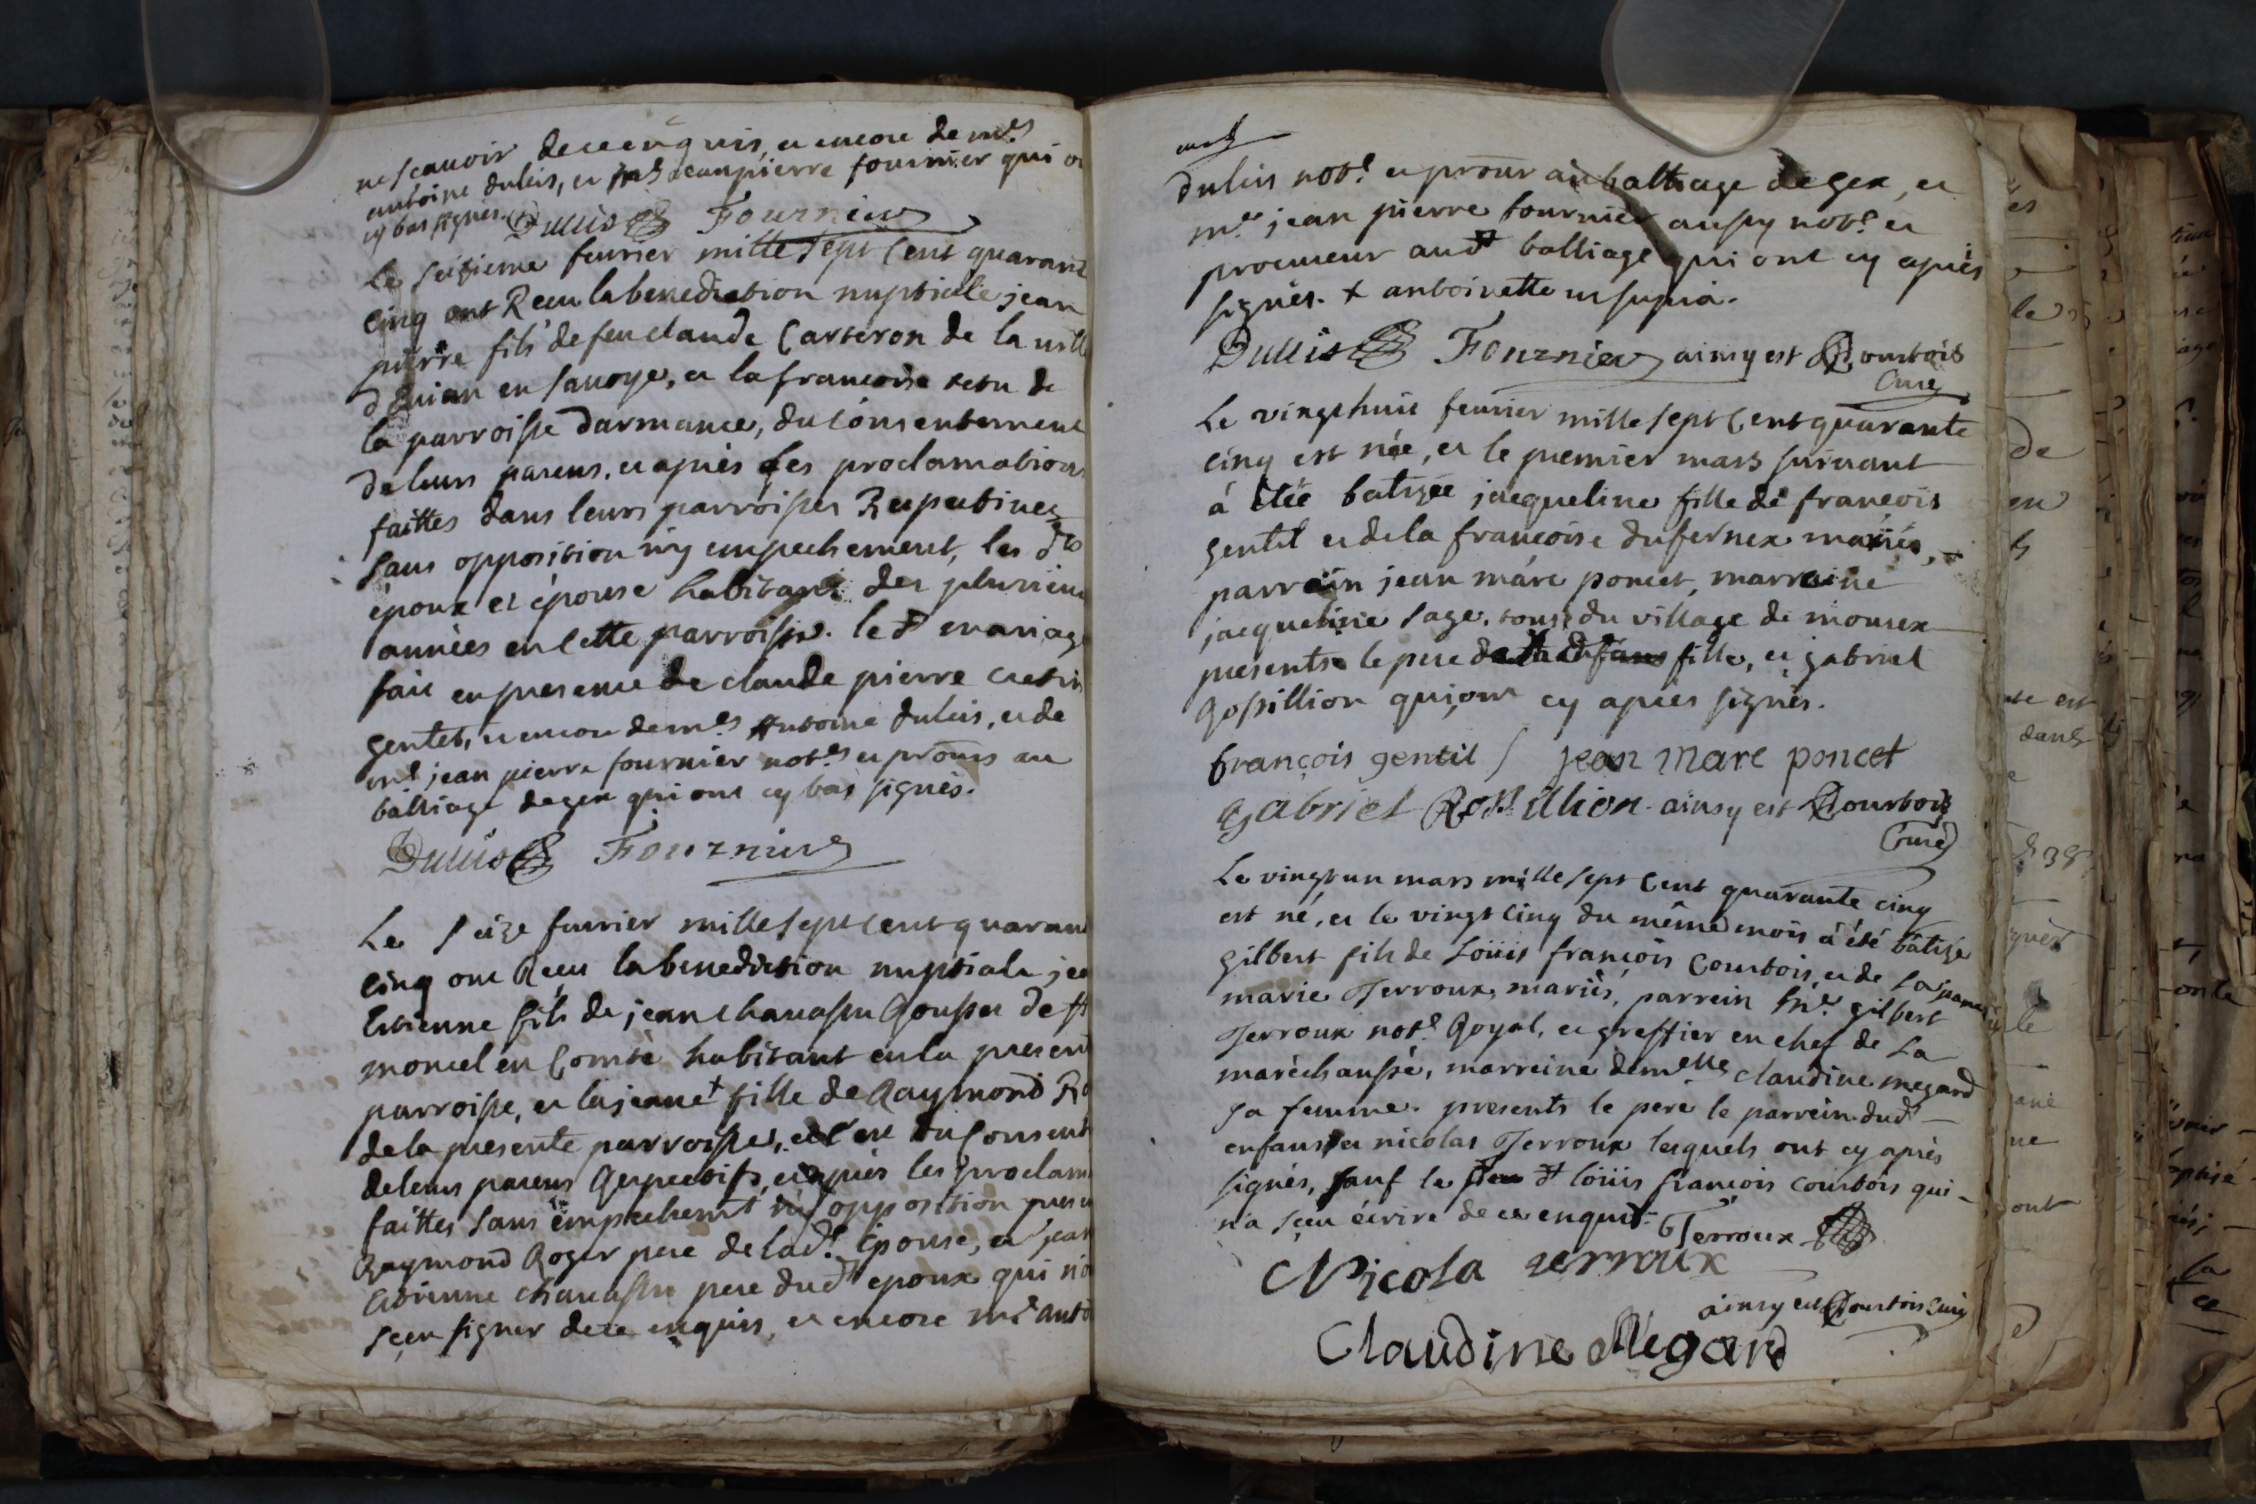 ne scauoir de ce enquis, et encore de mes
antoine duluis, et me jean pierre fournier qui o
cy bas signés. Dulluis Fournier
Le seizieme feurier mille sept Cent quarante
Cinq ont Receu la benediction nuptiale jean
pierre fils de feu claude Carteron de la uille
d'Euian en sauoye, et la francoise
la parroisse darmance, du consentement
de leurs parens, et après les proclamations
faittes dans leurs parroisses Respectiues
sans opposition n'y empechement, les dts
époux et épouse habitans des plusieurs
années en cette parroisse. le dt mariage
fait en presence de claude pierre
gentet, et encore de mes Antoine duluis, et de
me jean pierre fournier nots et prours au
balliage de gex qui ont cy bas signés.
Dulluis Fournier
Le seize feurier mille sept cent quaran
cinq ont Receu la benediction nuptiale jea
Etienne fils de jean chauassu Rousset de st
moncel en Comté habitant en la present
parroisse, et la jeane + fille de Raymond Ro
de la presente parroisse, du Consent
de leurs parens Respectifs, et après les proclam
faittes sans empechemt ny opposition presen
Raymond Roger pere de lade Epouse, et jean
Etienne chauassu pere dudt epoux qui n'o
sçeu signer de ce enquis, et encore me anto
duluis note et prour au balliage de gex, et
me jean pierre fournier aussy note et
procureur audt balliage qui ont cy après
signés. + antoinette ut supra.
Dulluis Fournier ainsy est Courtois
Curé
Le vingthuit feurier mille sept Cent quarante
cinq est née, et le premier mars suiuant
á étée batizée jacqueline fille de francois
gentil et de la francoise dufernex mariés,
parrain jean marc poncet, marraine
jacqueline sage, tous du village de mourex
presents le pere de fille, et gabriel
Rossillion qui ont cy après signés.
françois gentil jean Marc poncet
gabriel Rossillion ainsy est Courtois
Curé
Le vingt un mars mille sept Cent quarante cinq
est né, et le vingt Cinq du même mois á été bâtizé
gilbert fils de Loüis françois Courtois, et de La
marie Terroux mariés, parrein Me gilbert
Terroux note Royal, et greffier en chef de La
maréchaussé, marreine demelle claudine megard
sa femme. presents le pere le parrein dudt
enfans et nicolas Terroux lesquels ont cy après
signés, sauf le dt loüis francois courtois qui
n'a sçeu écrire de ce enquis. Terroux
Nicola terroux
ainsy est Courtois Curé
Claudine Megard